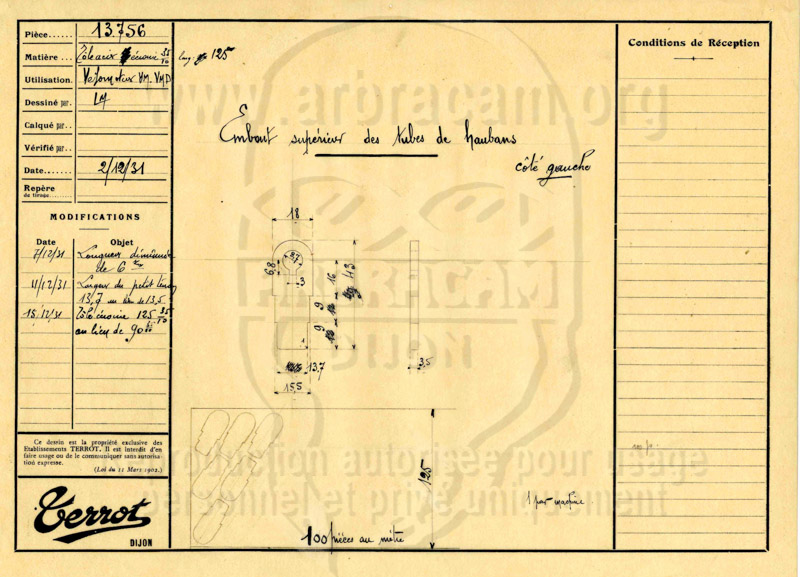 Pièce.... 13.756
Matière... Tôle 35/10
Utilisation. Vélomoteur VM. VMD
Dessiné par. LM
Calqué par..
Vérifié par..
Date....... 2/12/31
Repère
de tirage.......
MODIFICATIONS
Date Objet
7/12/31 Longueur diminuée
de 6 mm
11/12/31 Largeur du petit tenon
13,7 au lieu de 13,5
15/12/31 Tôle 125 35/10
au lieu de 90
Ce dessin est la propriété exclusive des
Etablissements TERROT. Il est interdit d'en
faire usage ou de le communiquer sans autorisa-
tion expresse.
(Loi du 11 Mars 1902.)
Terrot
DIJON
Larg. 125
Embout supérieur des tubes de haubans
côté gauche
18
6,8
3
16
43
9
9
13,7
15,5
3,5
125
100 pièces au mètre
1 par machine
Conditions de Réception
www.arbracam.org
ARBRACAM
DIJON
reproduction autorisée pour usage
personnel et privé uniquement